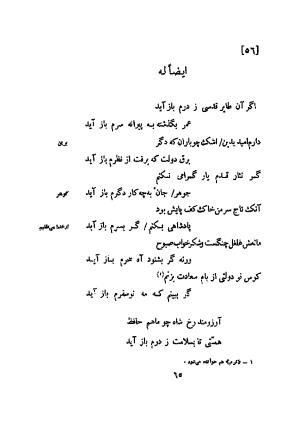 [۵۶]
ایضاً له
اگر آن طایر قدسی ز درم باز آید
عمر بگذشته به پیرانه سرم باز آید
دارم امید بدین/ اشک چو باران که دگر
بر این
برق دولت که برفت از نظرم باز آید
گر نثار قدم یار گرامی نکنم
جوهر/ جان به چه کار دگرم باز آید
گوهر
آنک تاج سر من خاک کف پایش بود
پادشاهی بکنم/ گر بسرم باز آید
از خدا می‌طلبم
مانعش غلغل چنگست و شکر خواب صبوح
ورنه گر بشنود آه سحرم باز آید
کوس نو دولتی از بام سعادت بزنم(۱)
گر ببینم که مه نوسفرم باز آید
آرزومند رخ شاه چو ماهم حافظ
همتی تا بسلامت ز درم باز آید
۱ – «کوس» هم خوانده می‌شود.
۶۵